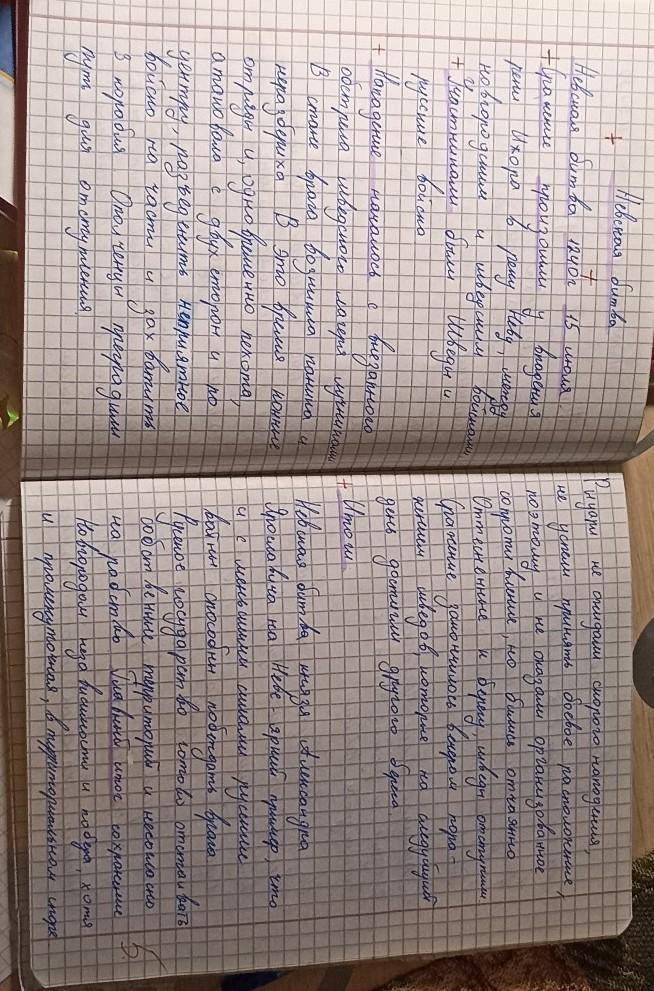 Невская битва
Невская битва 1240г 15 июля.
Сражение произошли у впадения
реки Ижора в реку Неву, между
новгородским и шведским войсками
Участниками были Шведы и
русские войска
Нападение началось с внезапного
обстрела шведского лагеря лучниками
В стане врага возникла паника и
неразбериха В это время конные
отряды и, одновременно пехота,
атаковала с двух сторон и по
центру, разъеденить неприятное
войско на части и захватить
3 корабля Ополченцы преградили
путь для отступления
Рыцари не ожидали скорого нападения,
не успели принять боевое расположение,
поэтому и не оказали организованное
сопротивление, но бились отчаянно
Оттесненные к берегу, шведы отступили
Сражение закончилось вечером пора-
жением шведов, которые на следующий
день достигли другого берега
Итоги
Невская битва князя Александра
Ярославича на Неве яркий пример, что
и с меньшими силами русские
войны способны победить врага
Русское государство готово отстаивать
собственные территории и несогласно
на рабство Главный итог сохранение
Новгородом независимости и победа, хотя
и промежуточная, в территориальном споре
5.